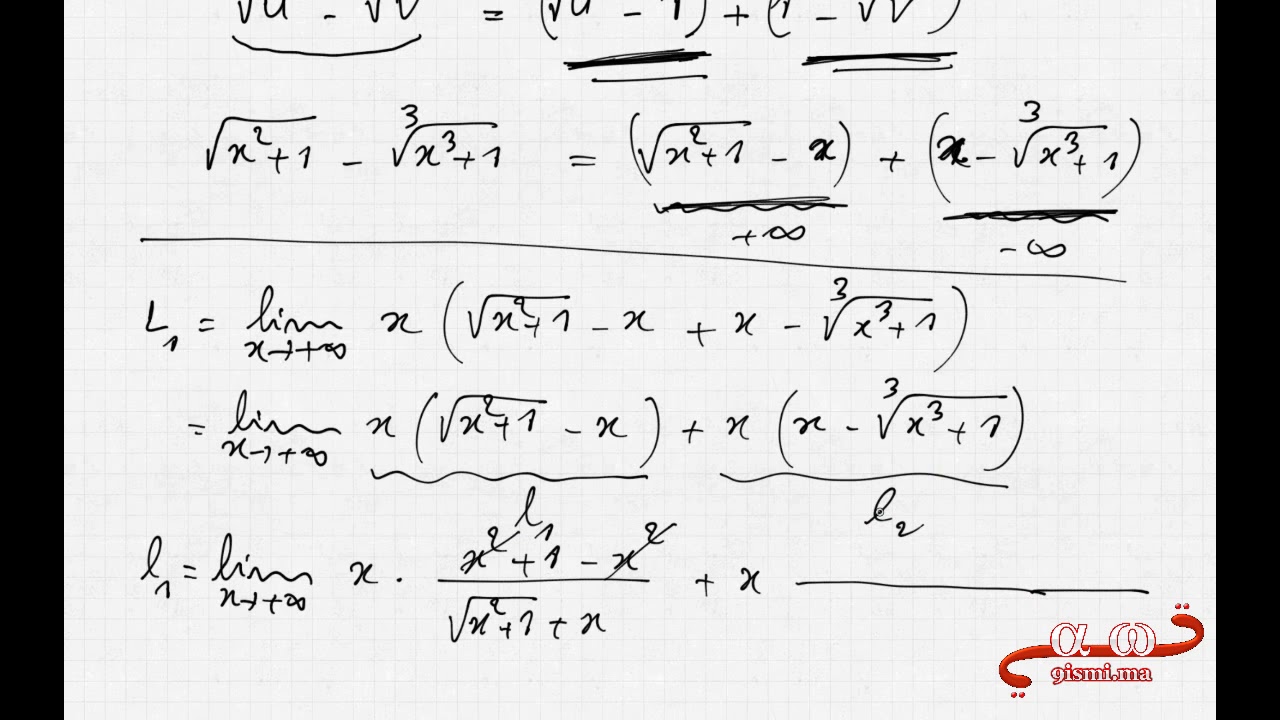 √u - √v = (√u - 1) + (1 - √v)
√x²+1 - ³√x³+1 = (√x²+1 - x) + (x - ³√x³+1)
+∞ -∞
L₁ = lim x→+∞ x (√x²+1 - x + x - ³√x³+1)
= lim x→+∞ x (√x²+1 - x) + x (x - ³√x³+1)
l₁ l₂
l₁ = lim x→+∞ x · (x²+1 - x²)/(√x²+1 + x) + x
α ω ق
gismi.ma